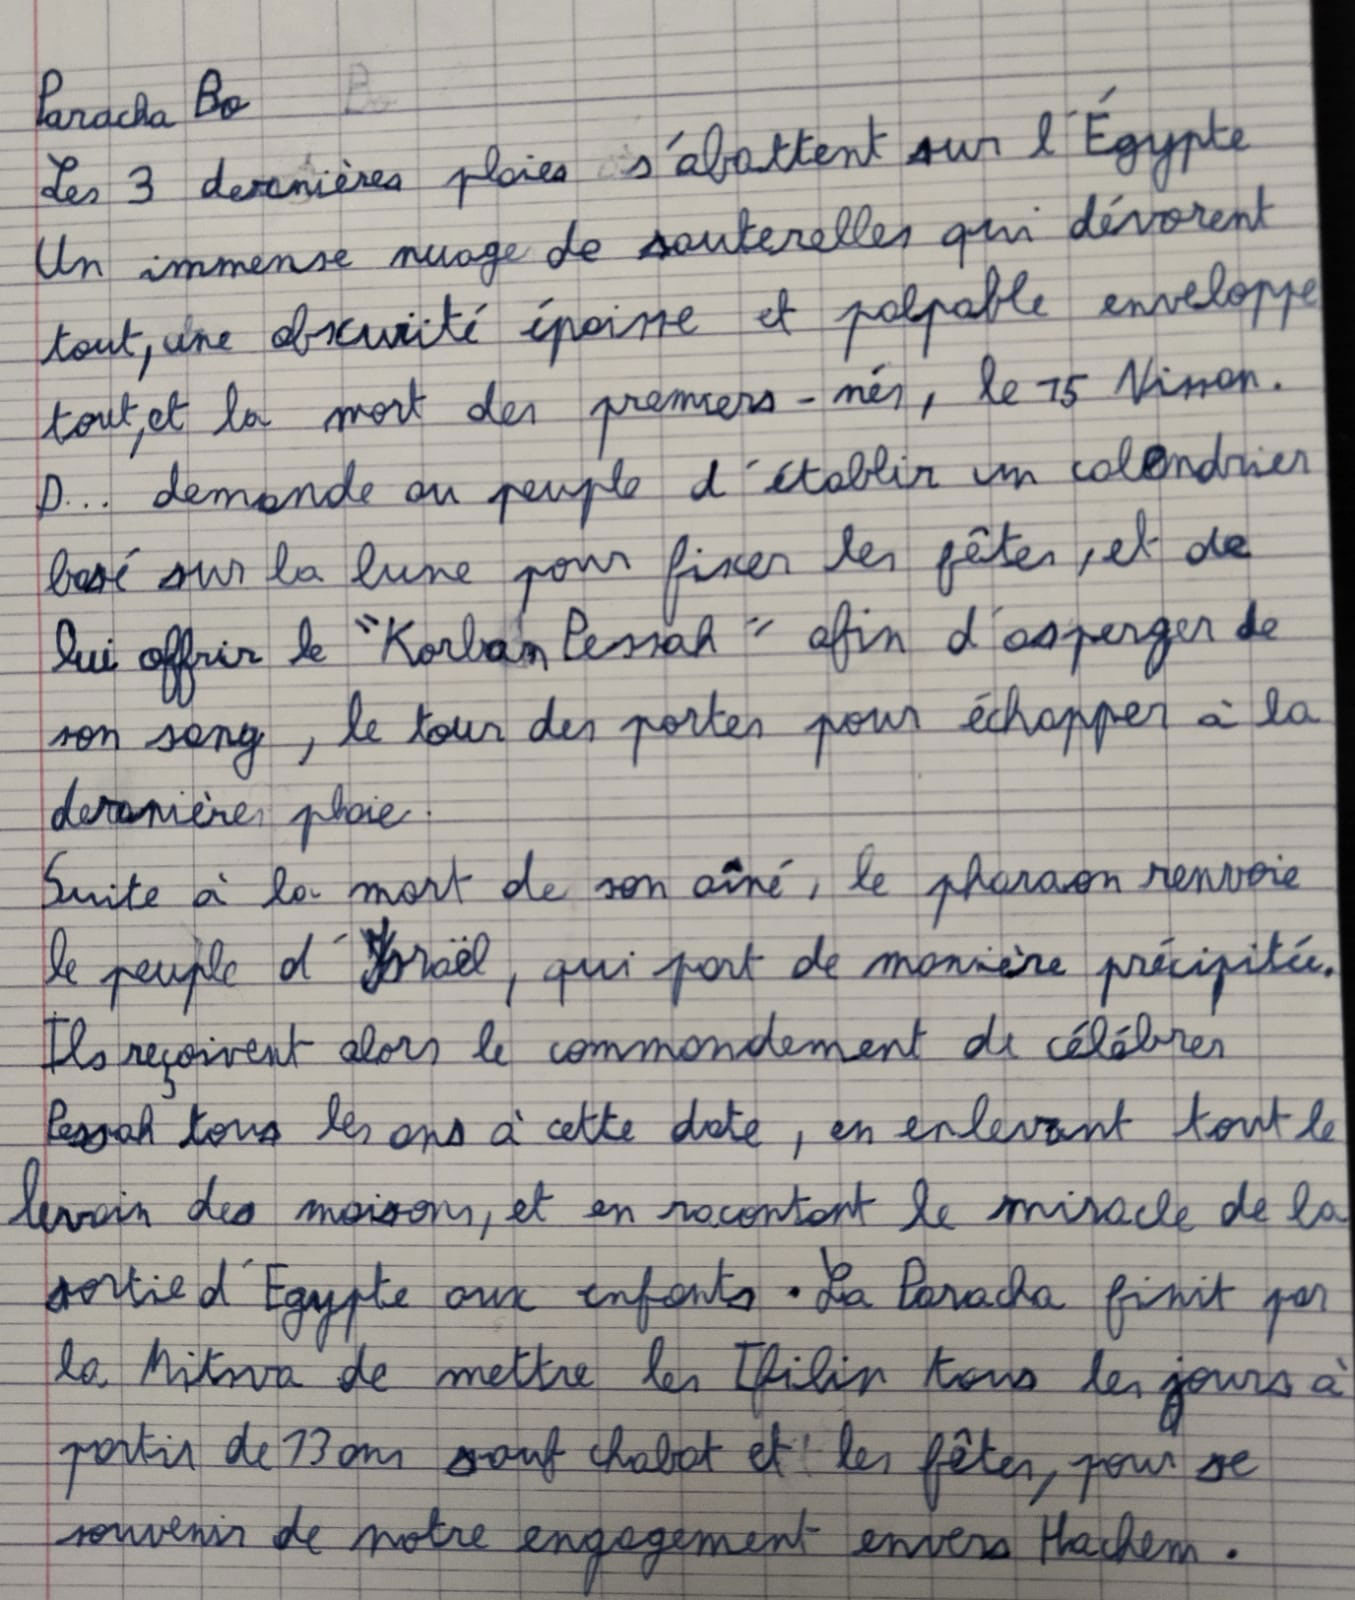 Paracha Bo
Les 3 dernières plaies s'abattent sur l'Égypte
Un immense nuage de sauterelles qui dévorent
tout, une obscurité épaisse et palpable enveloppe
tout, et la mort des premiers-nés, le 15 Nissan.
D... demande au peuple d'établir un calendrier
basé sur la lune pour fixer les fêtes, et de
lui offrir le "Korban Pessah" afin d'asperger de
son sang, le tour des portes pour échapper à la
dernière plaie.
Suite à la mort de son aîné, le pharaon renvoie
le peuple d'Israël, qui part de manière précipitée.
Ils reçoivent alors le commandement de célébrer
Pessah tous les ans à cette date, en enlevant tout le
levain des maisons, et en racontant le miracle de la
sortie d'Egypte aux enfants. La Paracha finit par
la Mitsva de mettre les Tfilin tous les jours à
partir de 13 ans sauf chabat et les fêtes, pour se
souvenir de notre engagement envers Hachem.